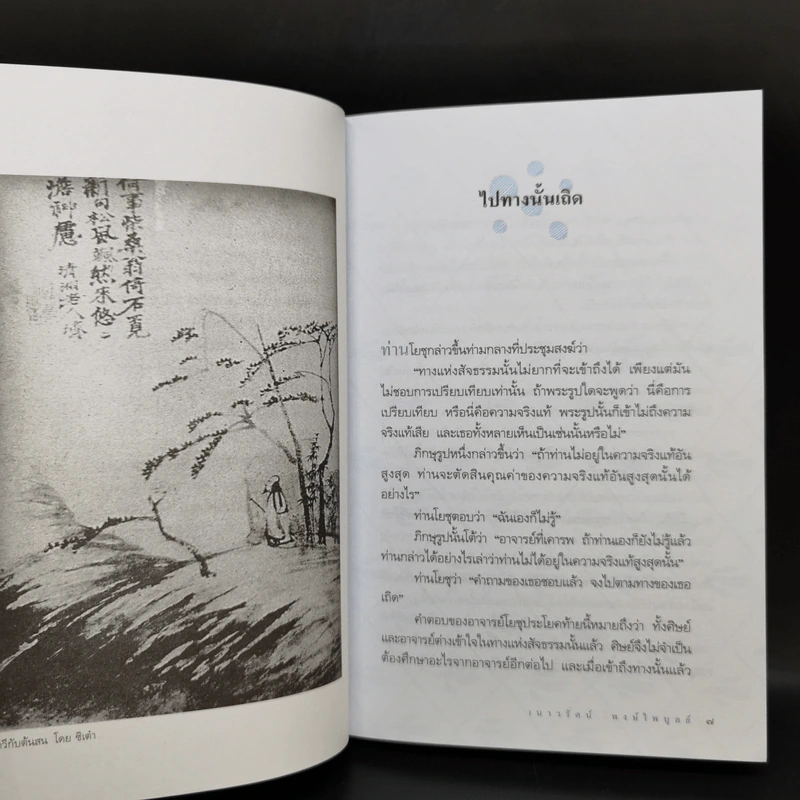 何事柴桑翁倚石覓
新句松風颯然來悠々
澹神慮
清湘老人濟
วีกับต้นสน โดย ซิเต๋า
ไปทางนั้นเถิด
ท่านโยชุกล่าวขึ้นท่ามกลางที่ประชุมสงฆ์ว่า
“ทางแห่งสัจธรรมนั้นไม่ยากที่จะเข้าถึงได้ เพียงแต่มัน
ไม่ชอบการเปรียบเทียบเท่านั้น ถ้าพระรูปใดจะพูดว่า นี่คือการ
เปรียบเทียบ หรือนี่คือความจริงแท้ พระรูปนั้นก็เข้าไม่ถึงความ
จริงแท้เสีย และเธอทั้งหลายเห็นเป็นเช่นนั้นหรือไม่”
ภิกษุรูปหนึ่งกล่าวขึ้นว่า “ถ้าท่านไม่อยู่ในความจริงแท้อัน
สูงสุด ท่านจะตัดสินคุณค่าของความจริงแท้อันสูงสุดนั้นได้
อย่างไร”
ท่านโยชุตอบว่า “ฉันเองก็ไม่รู้”
ภิกษุรูปนั้นโต้ว่า “อาจารย์ที่เคารพ ถ้าท่านเองก็ยังไม่รู้แล้ว
ท่านกล่าวได้อย่างไรเล่าว่าท่านไม่ได้อยู่ในความจริงแท้สูงสุดนั้น”
ท่านโยชุว่า “คำถามของเธอชอบแล้ว จงไปตามทางของเธอ
เถิด”
คำตอบของอาจารย์โยชุประโยคท้ายนี้หมายถึงว่า ทั้งศิษย์
และอาจารย์ต่างเข้าใจในทางแห่งสัจธรรมนั้นแล้ว ศิษย์จึงไม่จำเป็น
ต้องศึกษาอะไรจากอาจารย์อีกต่อไป และเมื่อเข้าถึงทางนั้นแล้ว
เนาวรัตน์ พงษ์ไพบูลย์ ๗